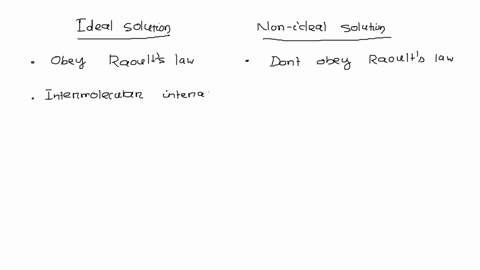 Ideal solution
Non-ideal solution
• Obey Raoult's law
• Dont obey Raoult's law
• Intermolecular intera